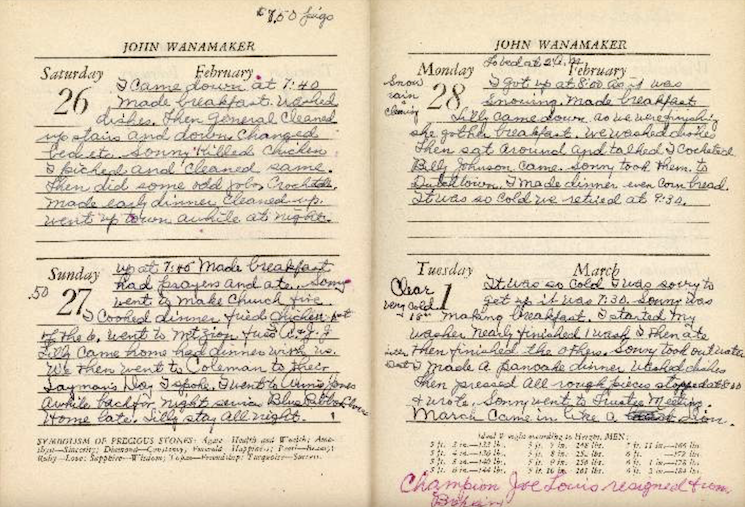 $7.50 pigs
JOHN WANAMAKER
Saturday February
26
I came down at 7:40
made breakfast. Washed
dishes. Then General Cleaned
up stairs and down Changed
bed etc. Sonny Killed Chicken
I picked and cleaned same.
Then did some odd jobs, Crocheted.
Made early dinner Cleaned up.
went up town awhile at night.
Sunday
27
.50
up at 7:45 Made breakfast
had prayers and ate. Sonny
went to Make Church fire
I Cooked dinner fried Chicken
of the 6, went to Mt Zion
Lilly came home had dinner with us.
We then went to Coleman to their
Layman's Day I spoke. I went to Annie Jones
Awhile back for night service Blue
Home late. Lilly stay All night.
SYMBOLISM OF PRECIOUS STONES: Agate—Health and Wealth; Ame-
thyst—Sincerity; Diamond—Constancy; Emerald—Happiness; Pearl—Beauty;
Ruby—Love; Sapphire—Wisdom; Topaz—Friendship; Turquoise—Success.
JOHN WANAMAKER
To bed at 2 A.M.
Monday February
28
Snow
rain
clearing
I got up at 8:00 as it was
snowing. Made breakfast
Lilly came down as we were finishing
she got her breakfast. We washed dishes
Then sat around and talked I crocheted
Billy Johnson came. Sonny took them to
Dutchtown. I made dinner even corn bread.
It was so cold we retired at 9:30.
Tuesday March
1
Clear
very cold
18°
It was so cold I was sorry to
get up it was 7:30. Sonny was
making breakfast. I started my
washer nearly finished I wash I then ate
Then finished the others. Sonny took out water
I Made A pancake dinner Washed dishes
Then pressed All rough pieces stopped at
& wrote. Sonny went to Trustee Meeting.
March Came in like a Lion.
Ideal Weight according to Height, MEN:
Champion Joe Louis resigned from